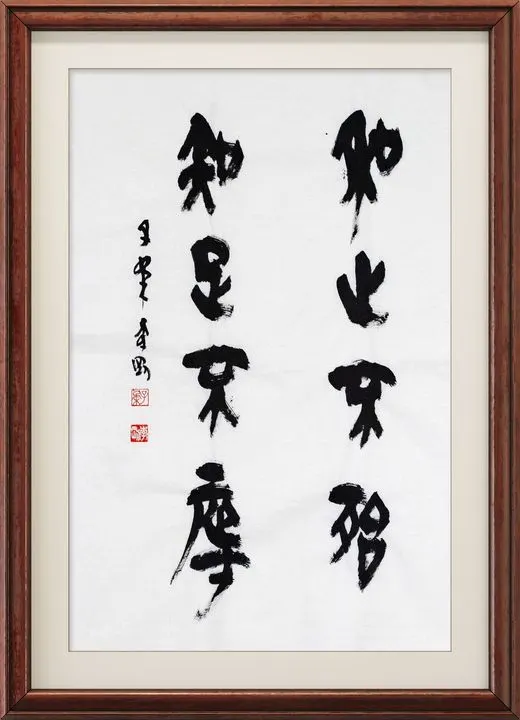 知止不殆
知足不辱